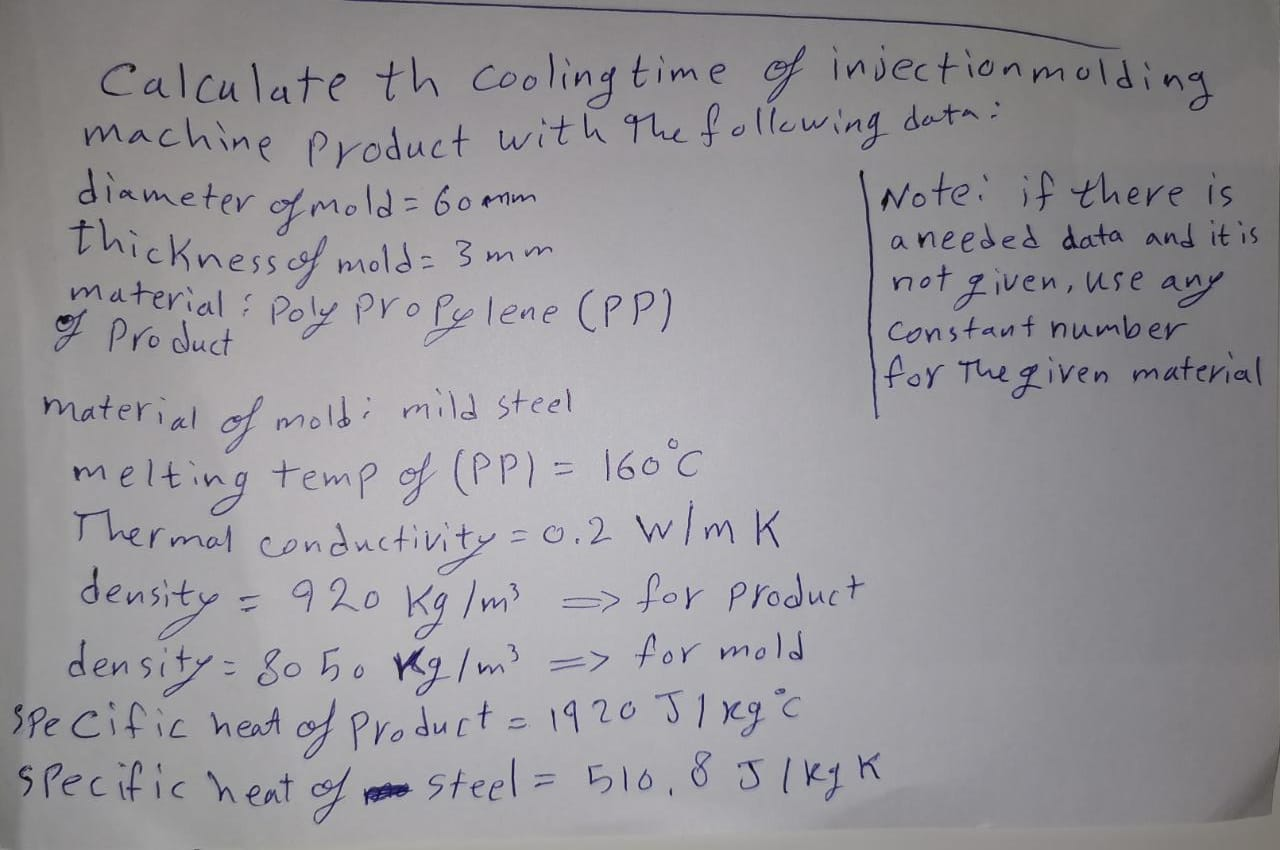 Calculate th cooling time of injection molding
machine product with the following data:
diameter of mold = 60 mm
thickness of mold = 3 mm
material : Poly Propylene (PP)
of Product
material of mold: mild steel
melting temp of (PP) = 160°C
Thermal conductivity = 0.2 W/m K
density = 920 Kg/m³ => for product
density = 8050 Kg/m³ => for mold
specific heat of Product = 1920 J/kg°C
specific heat of steel = 510.8 J/kg K
Note: if there is
a needed data and it is
not given, use any
constant number
for The given material